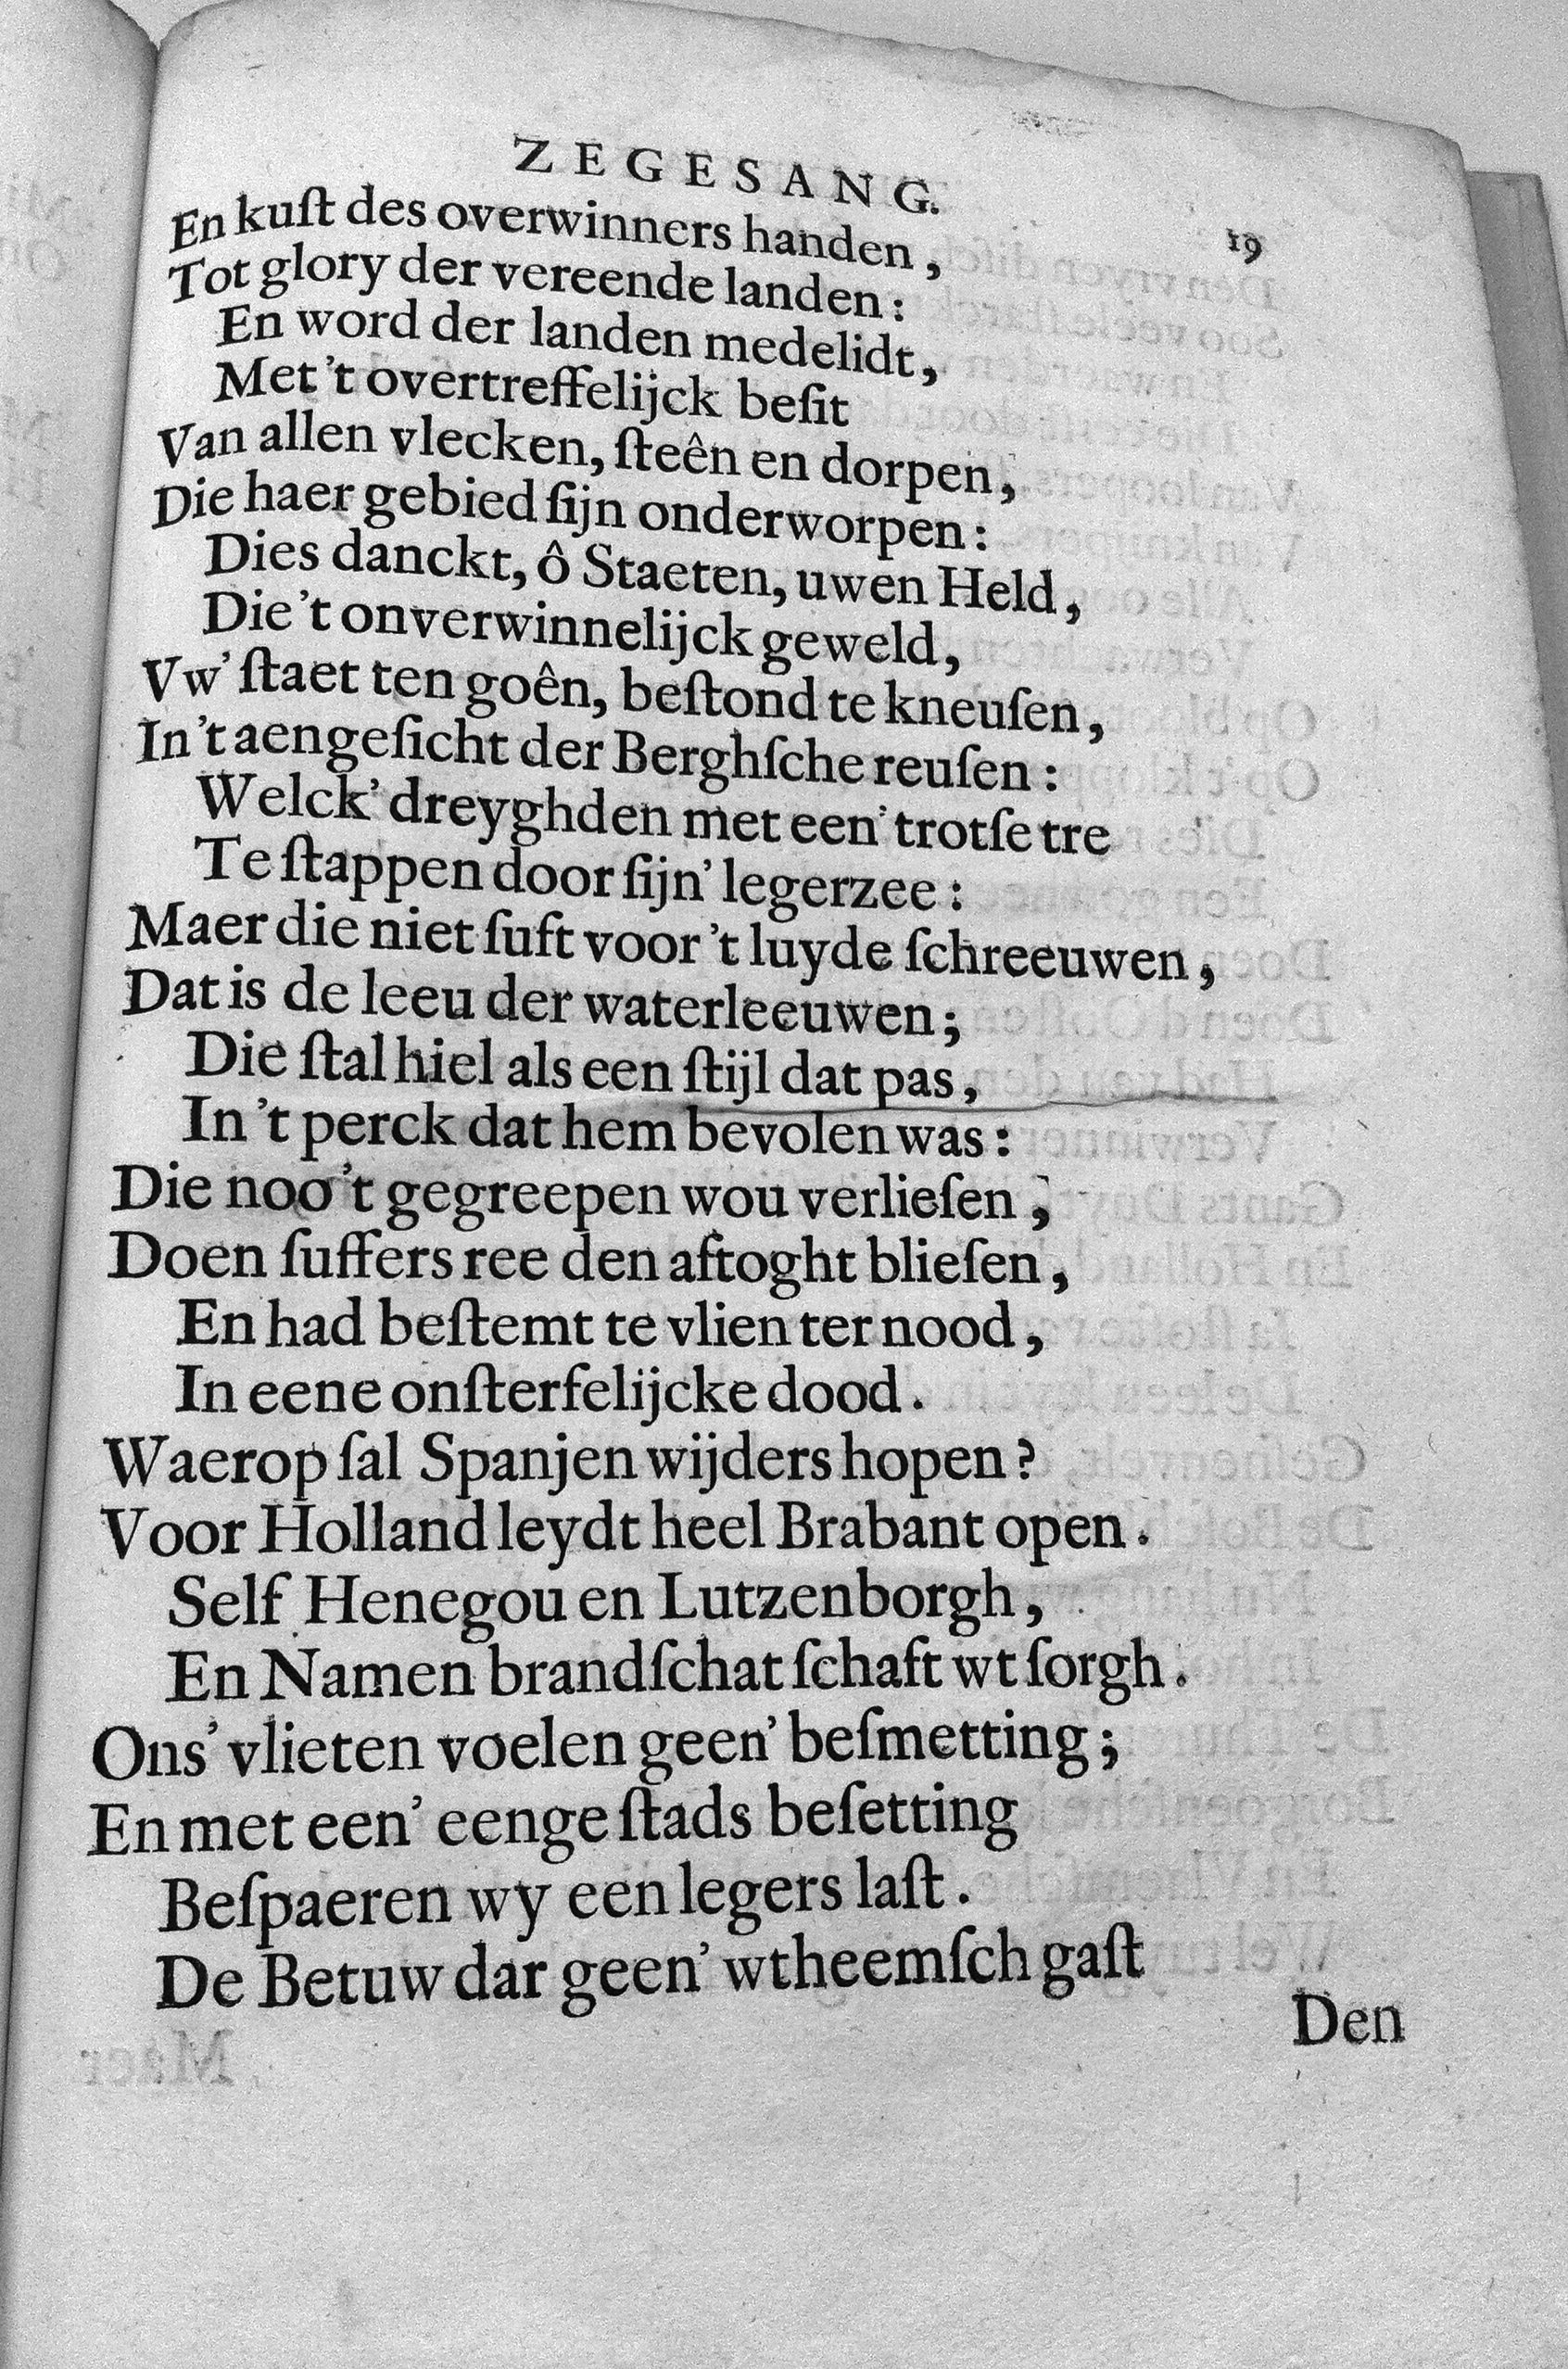 ZEGESANG. 19
En kuſt des overwinners handen,
Tot glory der vereende landen:
En word der landen medelidt,
Met 't overtreffelijck beſit
Van allen vlecken, ſteên en dorpen,
Die haer gebied ſijn onderworpen:
Dies danckt, ô Staeten, uwen Held,
Die 't onverwinnelijck geweld,
Vw' ſtaet ten goên, beſtond te kneuſen,
In 't aengeſicht der Berghſche reuſen:
Welck' dreyghden met een' trotſe tre
Te ſtappen door ſijn' legerzee:
Maer die niet ſuft voor 't luyde ſchreeuwen,
Dat is de leeu der waterleeuwen;
Die ſtal hiel als een ſtijl dat pas,
In 't perck dat hem bevolen was:
Die noo 't gegreepen wou verlieſen,
Doen ſuffers ree den aftoght blieſen,
En had beſtemt te vlien ter nood,
In eene onſterfelijcke dood.
Waerop ſal Spanjen wijders hopen?
Voor Holland leydt heel Brabant open.
Self Henegou en Lutzenborgh,
En Namen brandſchat ſchaft wt ſorgh.
Ons' vlieten voelen geen' beſmetting;
En met een' eenge ſtads beſetting
Beſpaeren wy een legers laſt.
De Betuw dar geen' wtheemſch gaſt
Den